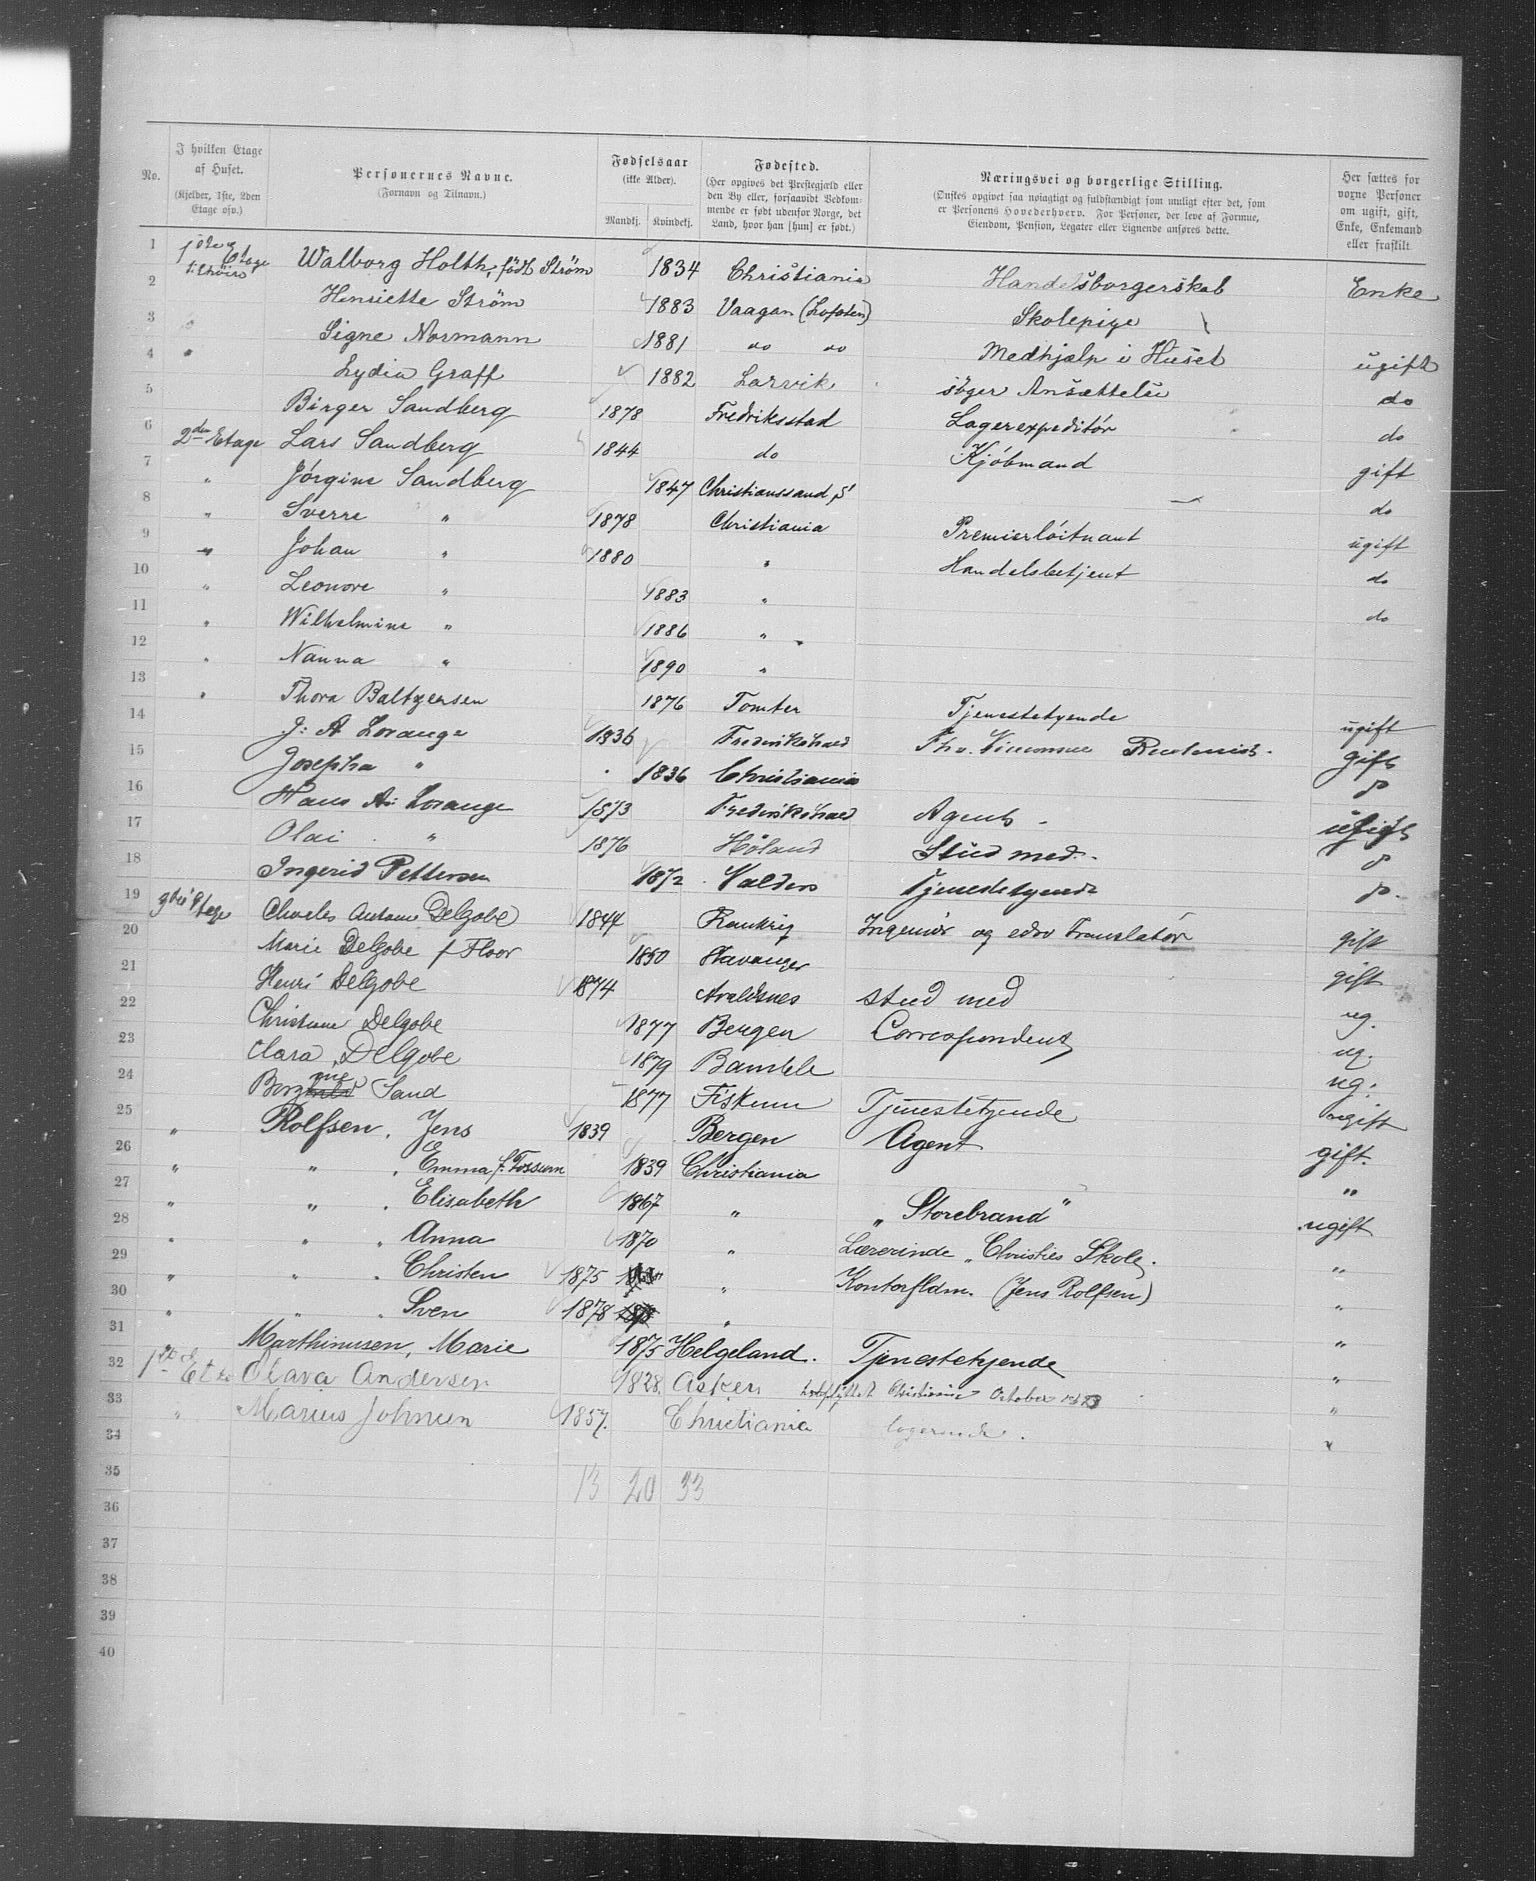 No.
I hvilken Etage af Huset. (Kjelder, 1ste, 2den Etage osv.)
Personernes Navne. (Fornavn og Tilnavn.)
Fødselsaar (ikke Alder). Mandkj. Kvindekj.
Fødested. (Her opgives det Prestegjæld eller den By eller, forsaavidt Vedkommende er født udenfor Norge, det Land, hvor han [hun] er født.)
Næringsvei og borgerlige Stilling. (Ønskes opgivet saa nøiagtigt og fuldstændigt som muligt efter det, som er Personens Hovederhverv. For Personer, der leve af Formue, Eiendom, Pension, Legater eller Lignende anføres dette.
Her sættes for voxne Personer om ugift, gift, Enke, Enkemand eller fraskilt.
1 1ste Etage tilhøire Walborg Holth, født Strøm 1834 Christiania Handelsborgerskab Enke
2 Henriette Strøm 1883 Vaagan (Lofoten) Skolepige
3 Signe Normann 1881 do do Medhjælp i Huset ugift
4 " Lydia Graff 1882 Larvik søger Ansættelse do
5 Birger Sandberg 1878 Fredriksstad Lagerexpeditør do
6 2den Etage Lars Sandberg 1844 do Kjøbmand gift
7 " Jørgine Sandberg 1847 Christianssand S — do
8 " Sverre " 1878 Christiania Premierløitnant ugift
9 " Johan " 1880 " Handelsbetjent do
10 " Leonore " 1883 " do
11 " Wilhelmine " 1886 "
12 " Nanna " 1890 "
13 " Thora Baltzersen 1876 Tomter Tjenestetyende ugift
14 J: A Lorange 1836 Frederikshald gift
15 Josepha " 1836 Christiania do
16 Hans A: Lorange 1873 Frederikshald Agent - ugift
17 Olai " 1876 Høland Stud med. do
18 Ingerid Pettersen 1872 Valders Tjenestetyende do
19 3die Etage Charles Antoine DelGobe 1844 Frankrig Ingeniør og edsv Translatør gift
20 Marie DelGobe f Floor 1850 Stavanger gift
21 Henri DelGobe 1874 Avaldsnes stud med ug.
22 Christiane DelGobe 1877 Bergen Correspondent ug.
23 Clara DelGobe 1879 Bamble ug.
24 Borgnie Sand 1877 Fiskum Tjenestetyende ugift
25 " Rolfsen, Jens 1839 Bergen Agent gift.
26 " " , Emma f. Fossum 1839 Christiania "
27 " " , Elisabeth 1867 " "Storebrand" ugift
28 " " , Anna 1870 " Lærerinde, Christies Skole. "
29 " " , Christen 1875 " Kontorfldm. (Jens Rolfsen) "
30 " " , Sven 1878 " "
31 Marthinusen, Marie 1875 Helgeland. Tjenestetyende "
32 1ste Et Clara Andersen 1828. Asker Christiania October "
33 " Marius Johnsen 1857. Christiania logerende. "
34
35 13 20 33
36
37
38
39
40